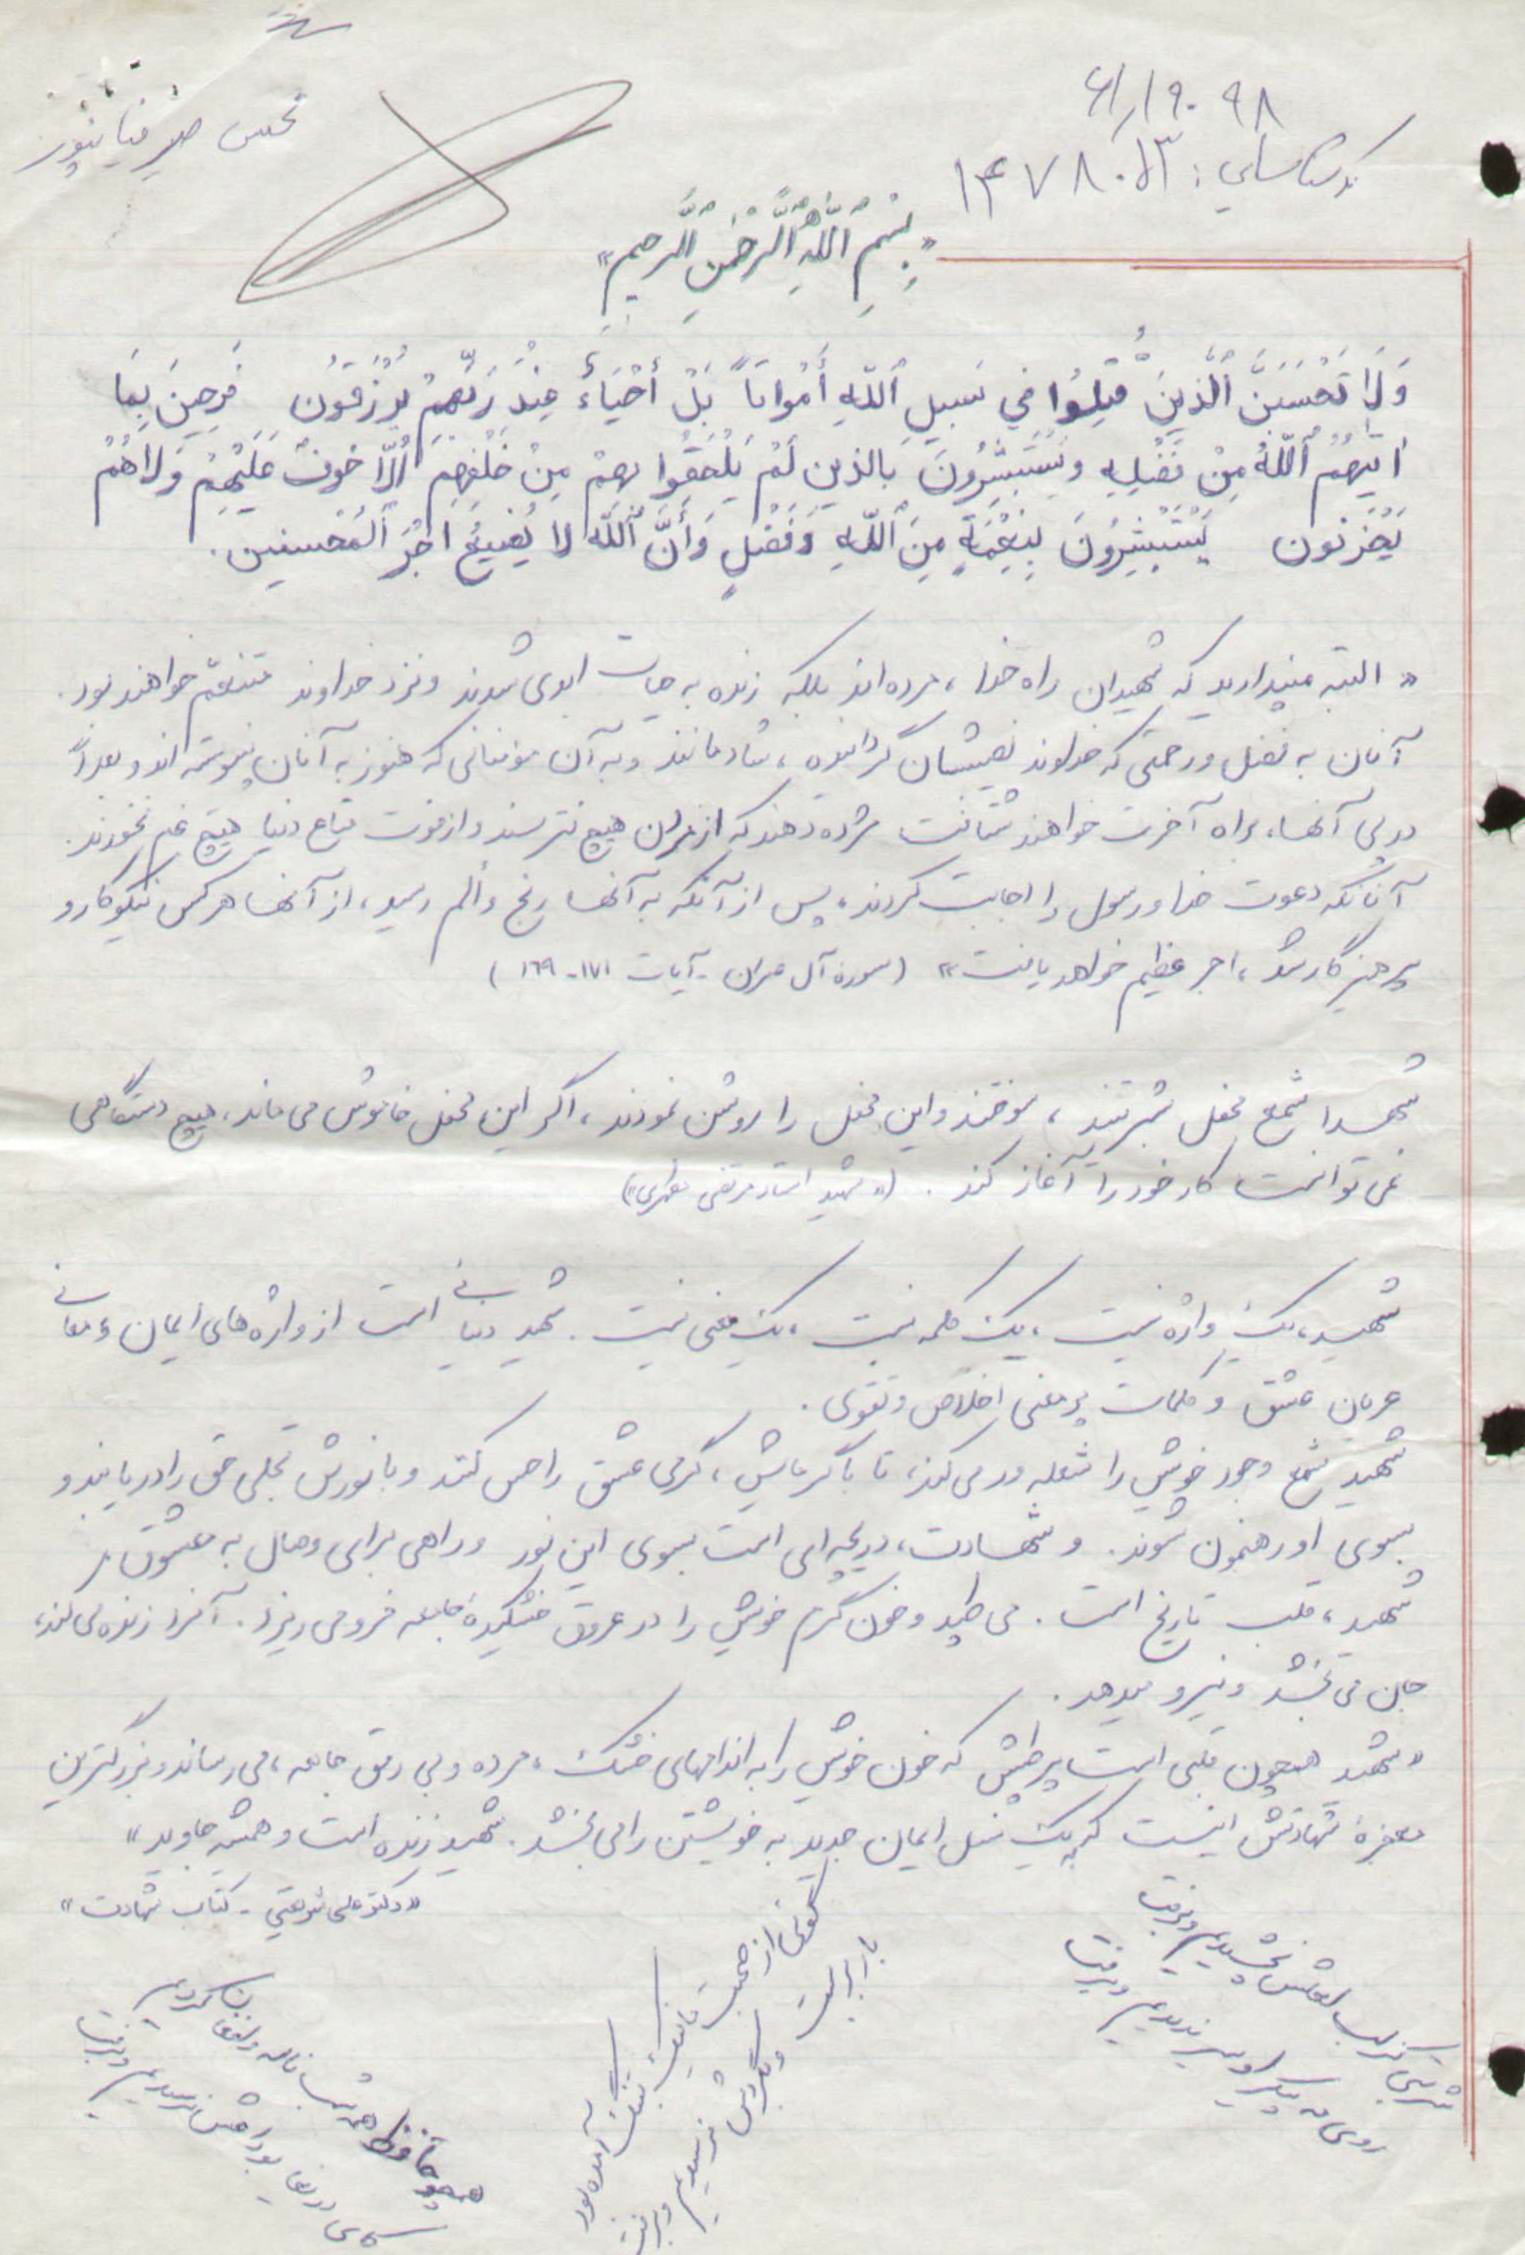 ۶۱/۱۹۰۹۸
کد شناسایی: ۱۴۷۸۰۱۳
محسن
«بِسْمِ ٱللَّهِ ٱلرَّحْمٰنِ ٱلرَّحیمِ»
وَلَا تَحْسَبَنَّ ٱلَّذینَ قُتِلُوا فی سَبیلِ ٱللّهِ أَمْوَاتاً بَلْ أَحْیَاءٌ عِنْدَ رَبِّهِمْ یُرْزَقُونَ فَرِحِینَ بِمَا
اتَیهُمُ ٱللّهُ مِنْ فَضْلِهِ وَیَسْتَبْشِرُونَ بالذین لَمْ یَلْحَقُوا بهمْ مِنْ خَلْفِهِمْ اَلَّا خوفٌ عَلَیْهِمْ وَلاهُمْ
یَحْزَنُون یَسْتَبْشِرُونَ بِنِعْمَةٍ مِنَ ٱللّهِ وَفَضْلٍ وَأَنَّ ٱللّه لا یُضیعُ اَجْرَ ٱلمُحْسنین.
« البته مپندارید که شهیدان راه خدا، مرده‌اند بلکه زنده به حیات ابدی شدند و نزد خداوند متنعّم خواهند بود.
آنان به فضل و رحمتی که خداوند نصیبشان گردانیده، شادمانند و به آن مؤمنانی که هنوز به آنان نپیوسته‌اند و بعداً
در پی آنها، براه آخرت خواهند شتافت مژده دهند که از مردن هیچ نترسند و از فوت متاع دنیا هیچ غم نخورند.
آنانکه دعوت خدا و رسول را اجابت کردند، پس از آنکه به آنها رنج و ألم رسید، از آنها هر کس نیکوکار و
پرهیزگار شد، اجر عظیم خواهد یافت» (سوره آل عمران - آیات ۱۷۱-۱۶۹)
شهدا شمع محفل بشرتند، سوختند و این محفل را روشن نمودند، اگر این محفل خاموش می ماند، هیچ دستگاهی
نمی توانست کار خود را آغاز کند. («شهید استاد مرتضی مطهری»)
شهید، یک واژه نیست، یک کلمه نیست، یک معنی نیست. شهید دنیایی است از واژه های ایمان و معانی
عریان عشق و کلمات پرمعنی اخلاص و تقوی.
شهید شمع وجود خویش را شعله ور می کند، تا با گرمایش، گرمی عشق را حس کنند و با نورش تجلی حق را دریابند و
بسوی او رهنمون شوند. و شهادت، دریچه ای است بسوی این نور و راهی برای وصال به معشوق.
شهید، قلب تاریخ است. می طپد و خون گرم خویش را در عروق خشکیدهٔ جامعه فرو می ریزد. آنرا زنده می کند،
جان می بخشد و نیرو میدهد.
«شهید همچون قلبی است پرطپش که خون خویش را به اندامهای خشک، مرده و بی رمق جامعه، می رساند و بزرگترین
معجزهٔ شهادتش اینست که بیک نسل ایمان جدید به خویشتن را می بخشد. شهید زنده است و همیشه جاوید»
«دکتر علی شریعتی - کتاب شهادت»
شربتی از لب لعلش نچشیدیم و برفت
روی مه پیکر او سیر ندیدیم و برفت
گوئی از صحبت ما نیک بتنگ آمده بود
بار بربست و بگردش نرسیدیم و برفت
همچو حافظ همه شب ناله و فغان کردیم
کای دریغا بوداعش نرسیدیم و برفت